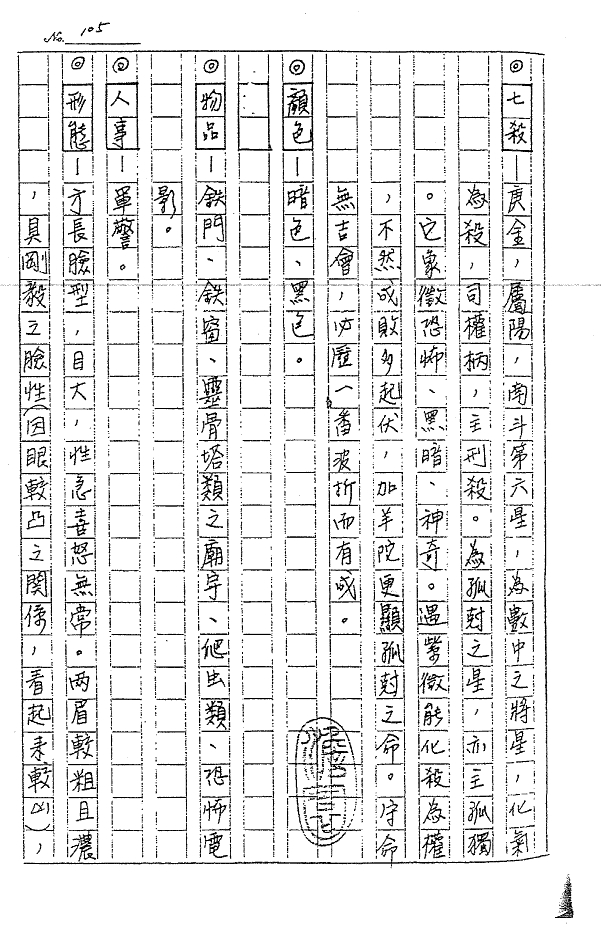 No. 105
◎七殺—庚金，屬陽，南斗第六星，為數中之將星，化氣
為殺，司權柄，主刑殺。為孤尅之星，亦主孤獨
。它象徵恐怖、黑暗、神奇。遇紫微能化殺為權
，不然成敗多起伏，加羊陀更顯孤尅之命。守命
無吉會，必歷一番波折而有成。
◎顏色—暗色、黑色。
◎物品—鉄門、鉄窗、靈骨塔類之廟宇、爬虫類、恐怖電
影。
◎人事—軍警。
◎形態—方長臉型，目大，性急喜怒無常。两眉較粗且濃
，具剛毅之臉性（因眼較凸之関係，看起来較凶），